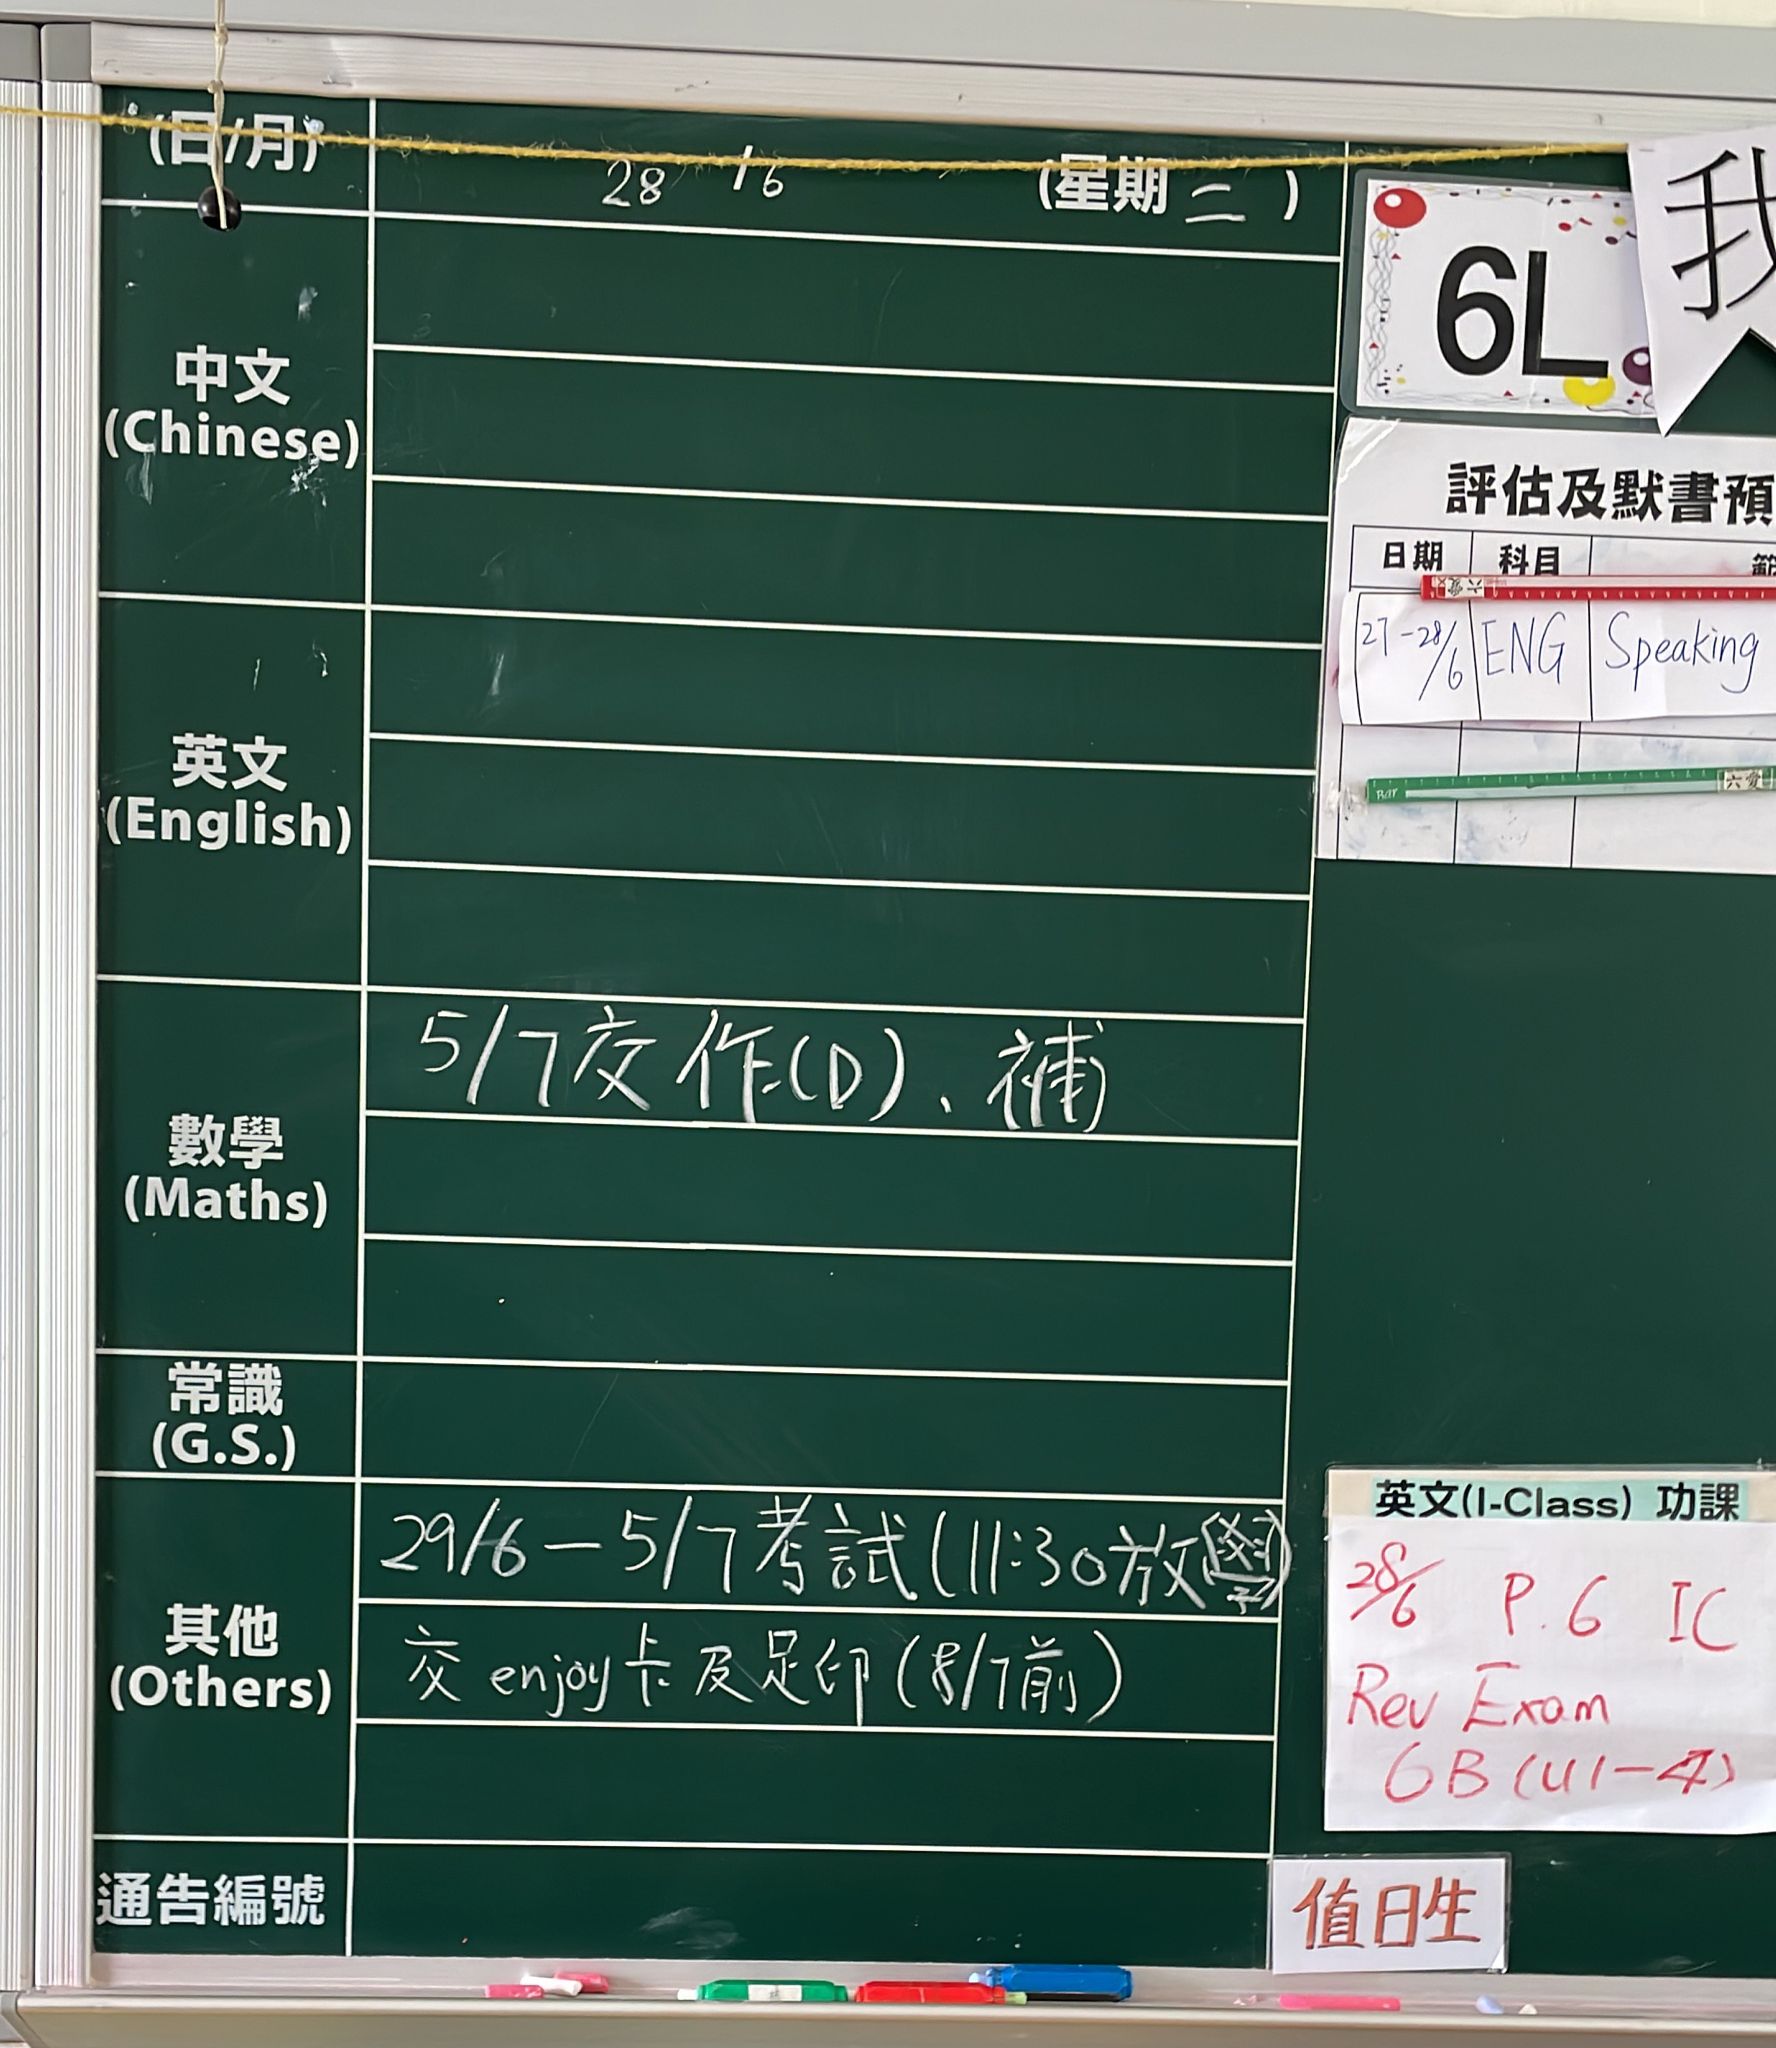 (日/月) 28 / 6 (星期 二 )
中文
(Chinese)
英文
(English)
數學
(Maths)
5/7交作(D)、補
常識
(G.S.)
其他
(Others)
29/6－5/7考試(11:30放學)
交 enjoy卡及足印(8/7前)
通告編號
6L
我
評估及默書預
日期 科目 範
27-28/6 ENG Speaking
六愛
英文(I-Class) 功課
28/6 P.6 IC
Rev Exam
6B (U1-4)
值日生